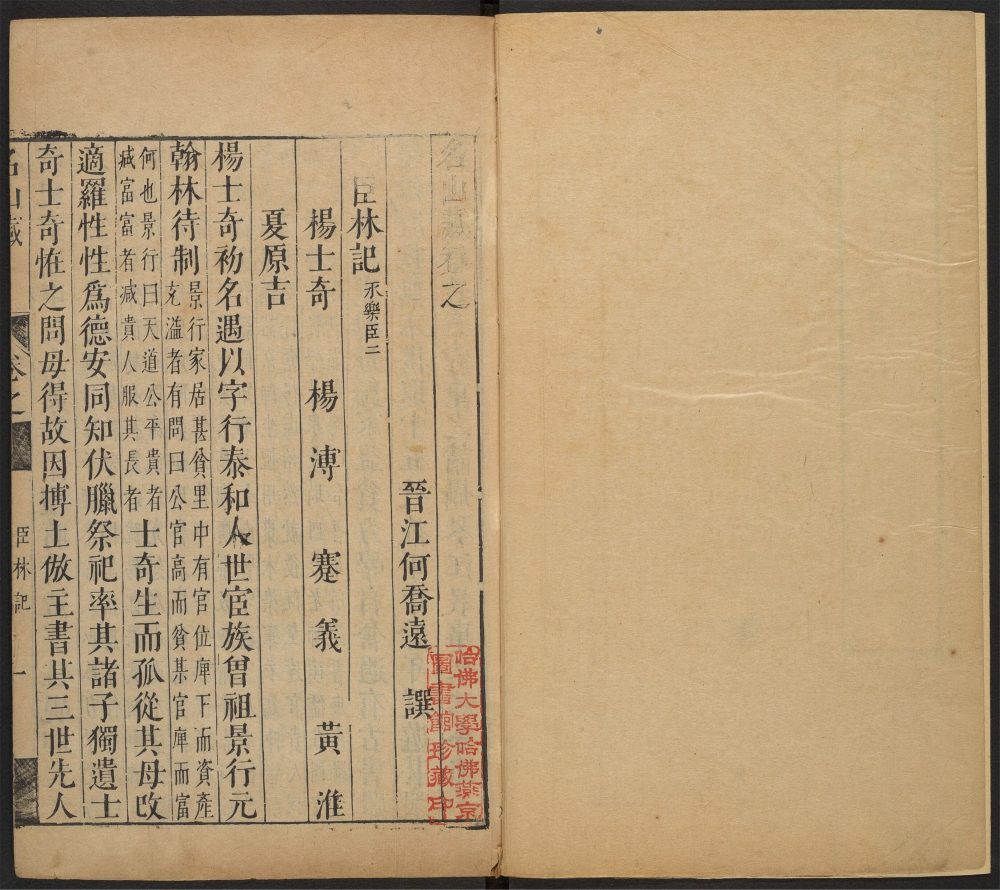 名山藏卷之
晉江何喬遠 譔
臣林記 永樂臣二
楊士奇 楊溥 蹇義 黃淮
夏原吉
楊士奇初名遇以字行泰和人世宦族曾祖景行元
翰林待制 景行家居甚貧里中有官位庳下而資產
充溢者有問曰公官高而貧某官庳而富
何也景行曰天道公平貴者
減富富者減貴人服其長者 士奇生而孤從其母改
適羅性性爲德安同知伏臘祭祀率其諸子獨遺士
奇士奇恠之問母得故因摶土倣主書其三世先人
名山藏 卷之 臣林記 一
哈佛大學哈佛燕京
圖書館珍藏印